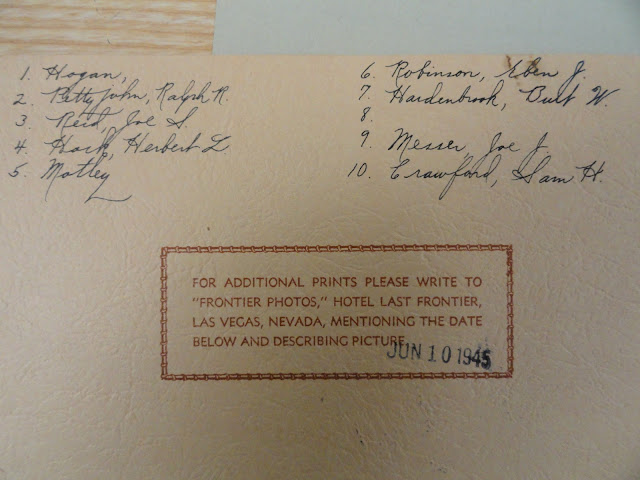 1. Hogan,
2. Pettyjohn, Ralph R.
3. Reid, Joe S.
4. Herbert L.
5. Motley
6. Robinson, Eben J.
7. Hardenbrook, Burt W.
8.
9. Messer, Joe J.
10. Crawford, Sam H.
FOR ADDITIONAL PRINTS PLEASE WRITE TO
"FRONTIER PHOTOS," HOTEL LAST FRONTIER,
LAS VEGAS, NEVADA, MENTIONING THE DATE
BELOW AND DESCRIBING PICTURE.
JUN 10 1945